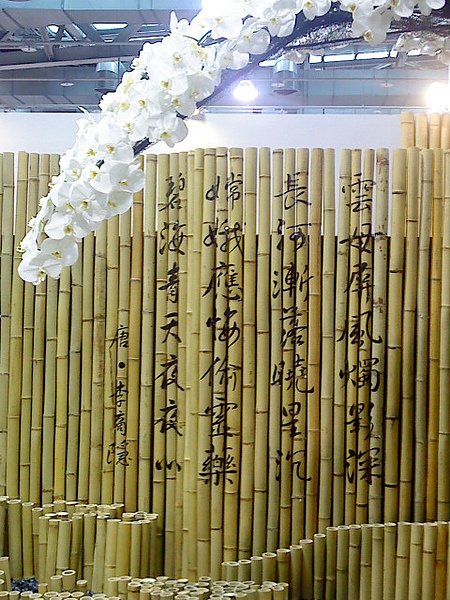 雲母屏風燭影深
長河漸落曉星沉
嫦娥應悔偷靈藥
碧海青天夜夜心
唐·李商隱